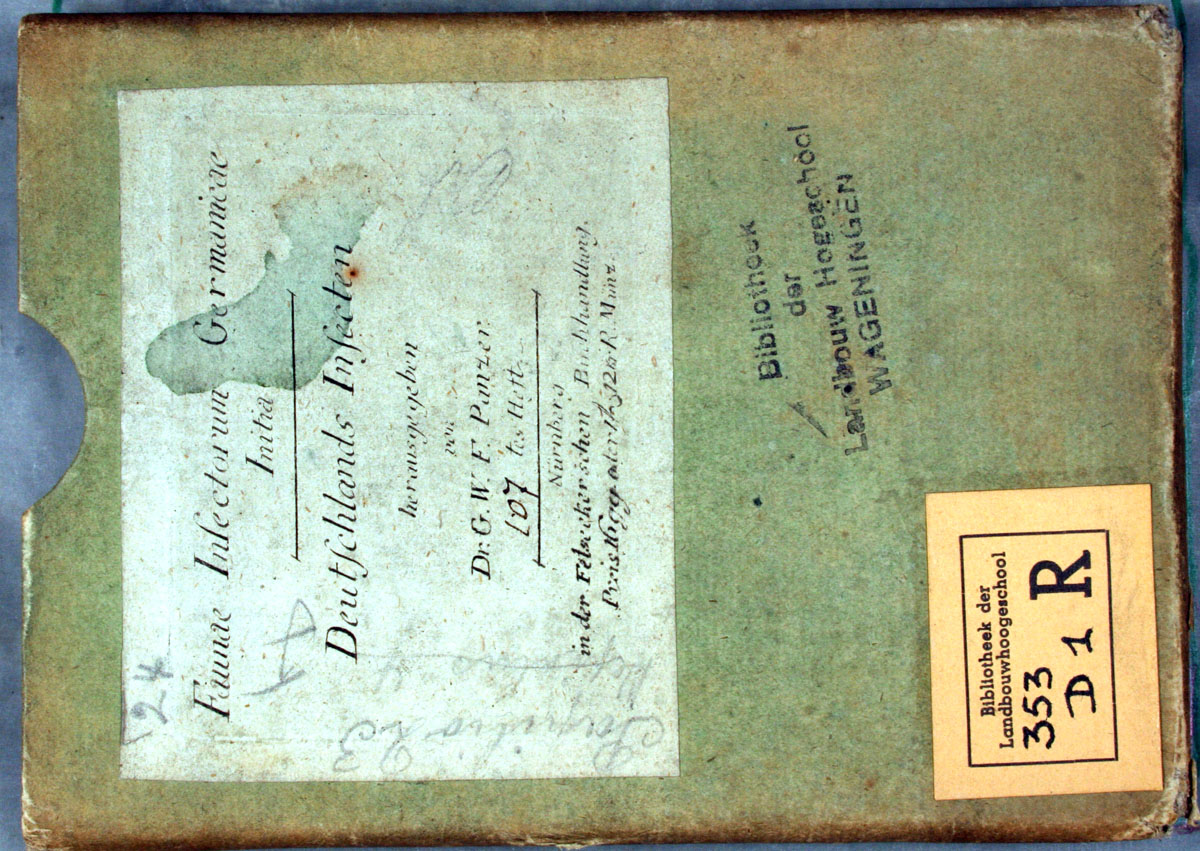 24
Faunae Insectorum Germanicae
Initia
Deutſchlands Inſecten
herausgegeben
von
Dr. G. W. F. Panzer
107 tes Heft.
Nürnberg
in der Felseckerschen Buchhandlung.
Preis 12 gr.
Bibliotheek
der
Landbouw Hogeschool
WAGENINGEN
Bibliotheek der
Landbouwhoogeschool
353
D 1 R